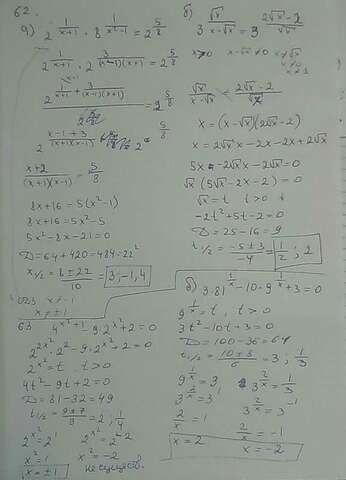 62.
а) 2^{1/(x+1)} · 8^{1/(x²-1)} = 2^{5/8}
2^{1/(x+1)} · 2^{3/((x-1)(x+1))} = 2^{5/8}
2^{1/(x+1) + 3/((x-1)(x+1))} = 2^{5/8}
(x+2)/((x+1)(x-1)) = 5/8
8x+16 = 5(x²-1)
8x+16 = 5x²-5
5x²-8x-21=0
D = 64+420=484=22²
x1/2 = (8±22)/10 = 3; -1,4
x≠±1
б) 3^{√x/(x-√x)} = 3^{(2√x-2)/√x}
x>0 x-√x≠0 x≠√x
x≠0
x≠1
√x/(x-√x) = (2√x-2)/√x
x=(x-√x)(2√x-2)
x=2√x x-2x-2x+2√x
5x-2√x x-2√x=0
√x(5√x-2x-2)=0
√x=t t>0
-2t²+5t-2=0
D=25-16=9
t1/2 = (-5±3)/-4 = 1/2; 2
63
4^{x²+1} - 9·2^{x²}+2=0
2^{2x²}·2²-9·2^{x²}+2=0
2^{x²}=t t>0
4t²-9t+2=0
D=81-32=49
t1/2 = (9±7)/8 = 2; 1/4
2^{x²}=2¹ 2^{x²}=2^{-2}
x²=1 x²=-2
x=±1 не существ.
б) 3·81^{1/x}-10·9^{1/x}+3=0
9^{1/x}=t, t>0
3t²-10t+3=0
D=100-36=64
t1/2 = (10±8)/6 = 3; 1/3
9^{1/x}=3 3^{2/x}=1/3
3^{2/x}=3¹ 3^{2/x}=3^{-1}
2/x=1 2/x=-1
x=2 x=-2